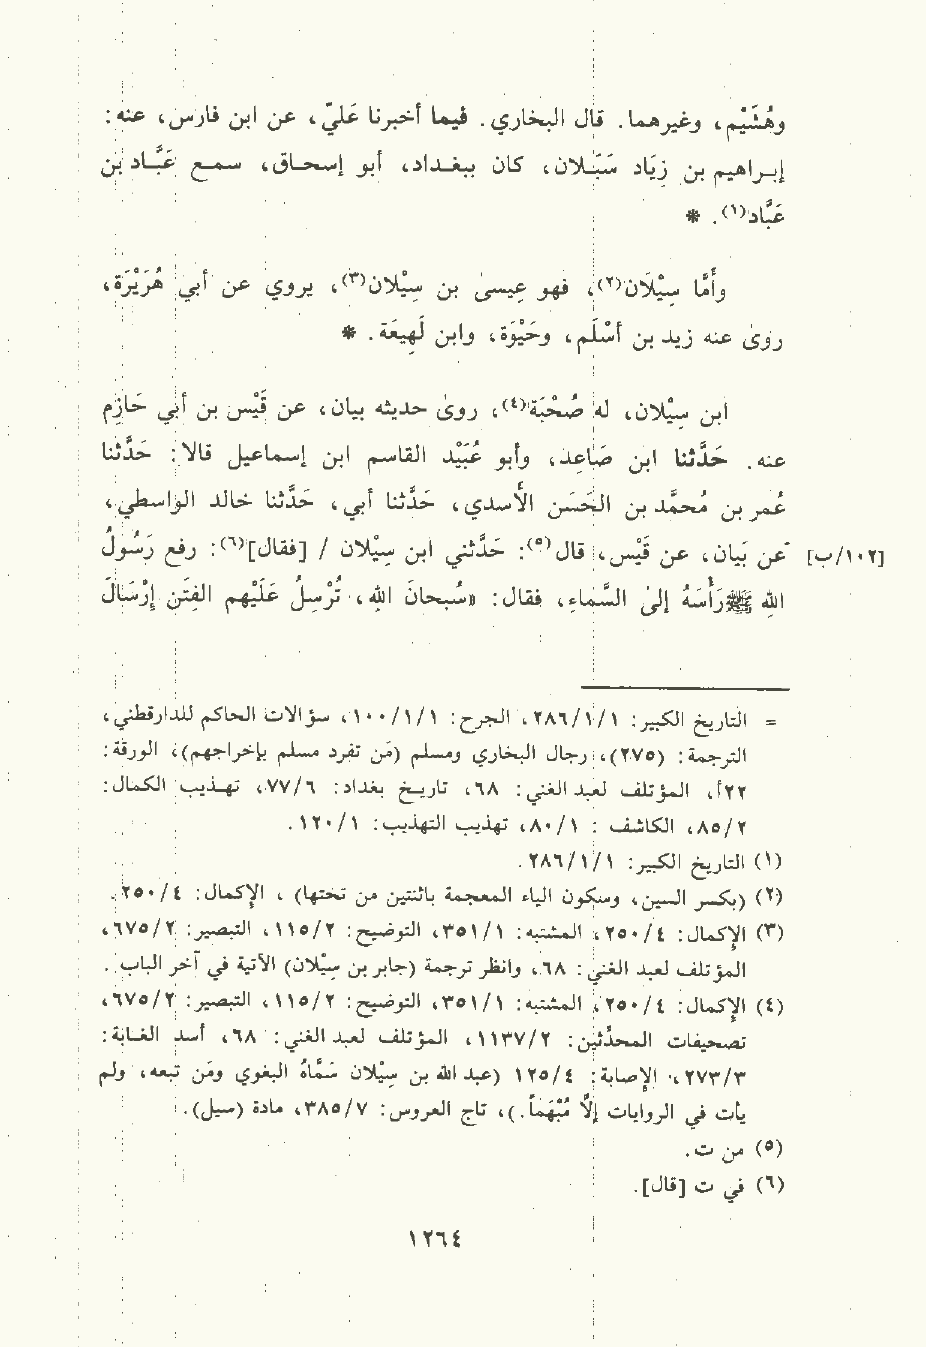 وهُشَيْم، وغيرهما. قال البخاري. فيما أخبرنا عَليّ، عن ابن فارس، عنه:
إبراهيم بن زِيَاد سَبَلان، كان ببغداد، أبو إسحاق، سمع عَبَّاد بن
عَبَّاد(١). *
وأَمَّا سِيْلَان(٢)، فهو عِيسىٰ بن سِيْلان(٣)، يروي عن أبي هُرَيْرَة،
روىٰ عنه زيد بن أَسْلَم، وحَيْوَة، وابن لَهِيعَة. *
ابن سِيْلان، له صُحْبَة(٤)، روىٰ حديثه بيان، عن قَيْس بن أبي حَازِم
عنه. حَدَّثنا ابن صَاعِد، وأبو عُبَيْد القاسم ابن إسماعيل قالا: حَدَّثنا
عُمر بن مُحمَّد بن الحَسَن الأسدي، حَدَّثنا أبي، حَدَّثنا خالد الواسطي،
[١٠٢/ب] عن بَيان، عن قَيْس، قال(٥): حَدَّثني ابن سِيْلان / [فقال](٦): رفع رَسُولُ
الله ﷺ رَأْسَهُ إلىٰ السَّماءِ، فقال: «سُبحانَ اللهِ، تُرْسِلُ عَلَيْهم الفِتَن إِرْسَالَ
= التاريخ الكبير: ٢٨٦/١/١، الجرح: ١٠٠/١/١، سؤالات الحاكم للدارقطني،
الترجمة: (٢٧٥)، رجال البخاري ومسلم (مَن تفرد مسلم بإخراجهم)، الورقة:
٢٢أ، المؤتلف لعبد الغني: ٦٨، تاريخ بغداد: ٧٧/٦، تهذيب الكمال:
٨٥/٢، الكاشف : ٨٠/١، تهذيب التهذيب: ١٢٠/١.
(١) التاريخ الكبير: ٢٨٦/١/١.
(٢) (بكسر السين، وسكون الياء المعجمة باثنتين من تحتها) ، الإكمال: ٢٥٠/٤.
(٣) الإكمال: ٢٥٠/٤، المشتبه: ٣٥١/١، التوضيح: ١١٥/٢، التبصير: ٦٧٥/٢،
المؤتلف لعبد الغني: ٦٨، وانظر ترجمة (جابر بن سِيْلان) الآتية في آخر الباب.
(٤) الإكمال: ٢٥٠/٤، المشتبه: ٣٥١/١، التوضيح: ١١٥/٢، التبصير: ٦٧٥/٢،
تصحيفات المحدِّثين: ١١٣٧/٢، المؤتلف لعبد الغني: ٦٨، أسد الغابة:
٢٧٣/٣، الإصابة: ١٢٥/٤ (عبد الله بن سِيْلان سَمَّاهُ البغوي ومَن تبعه، ولم
يأت في الروايات إلَّا مُبْهَماً.)، تاج العروس: ٣٨٥/٧، مادة (سيل).
(٥) من ت.
(٦) في ت [قال].
١٢٦٤